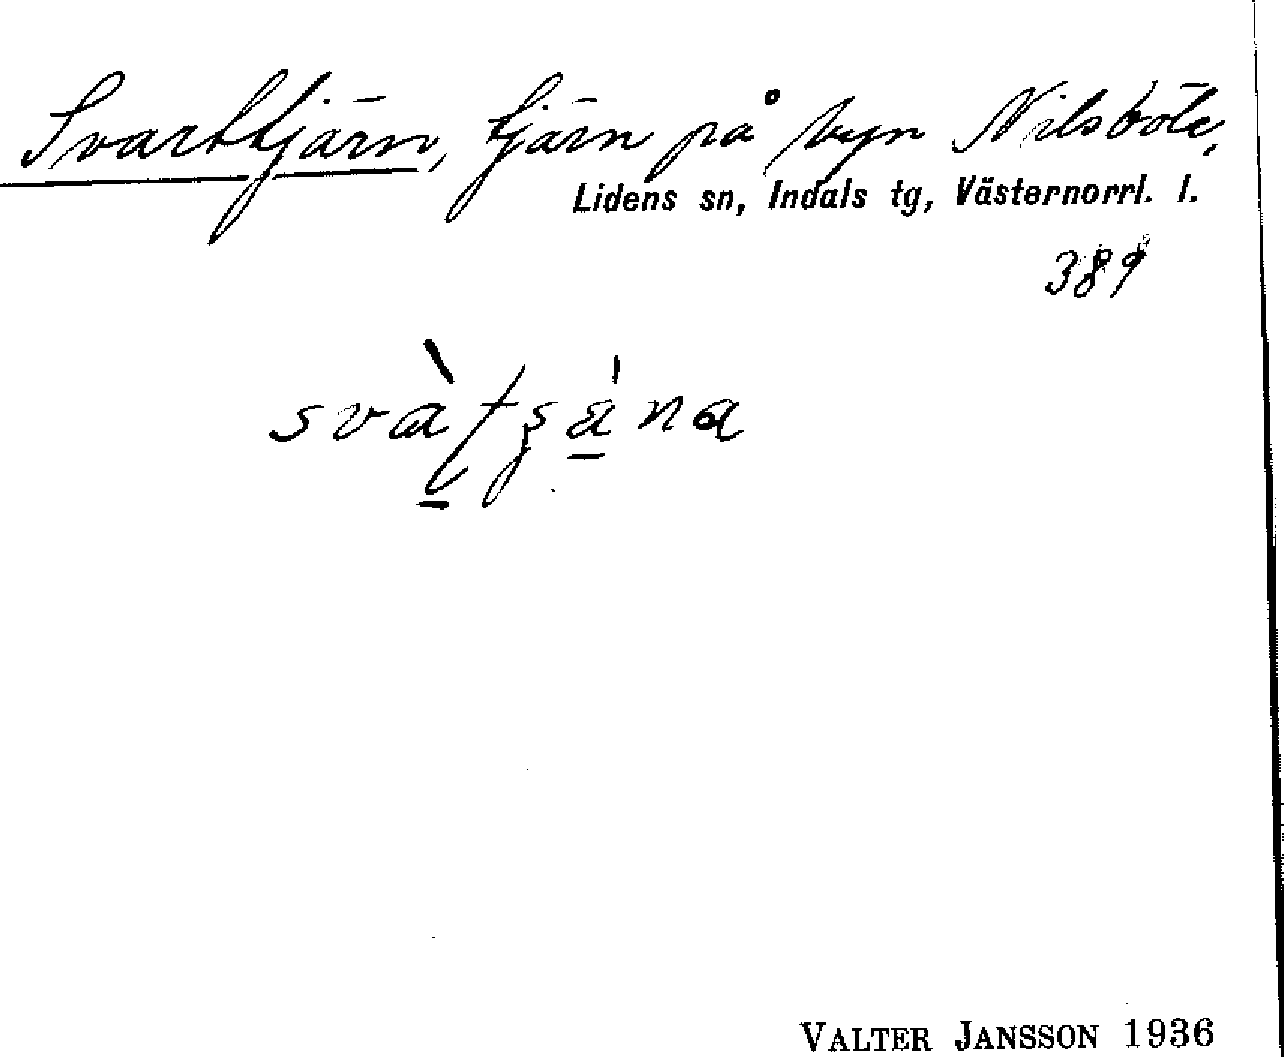 Svarttjärn, tjärn på byn Nilsböle,
Lidens sn, Indals tg, Västernorrl. l.
389
VALTER JANSSON 1936